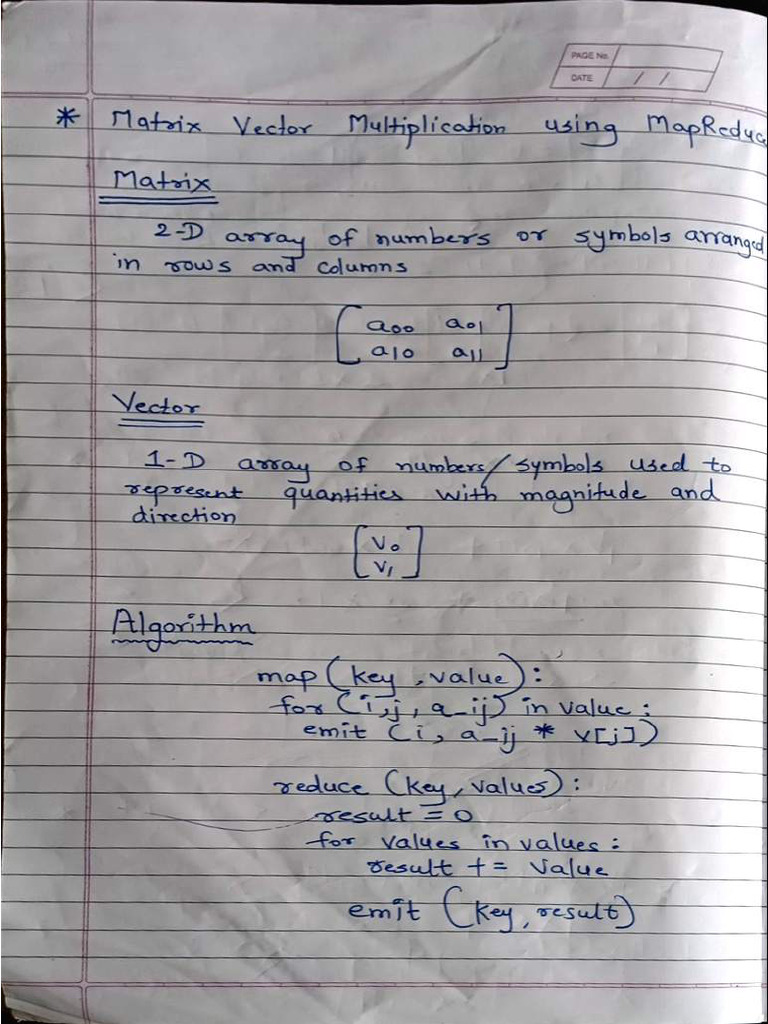 PAGE No.
DATE / /
* Matrix Vector Multiplication using MapReduc
Matrix
2-D array of numbers or symbols arranged
in rows and columns
[ a00 a01
a10 a11 ]
Vector
1-D array of numbers/symbols used to
represent quantities with magnitude and
direction
[ V0
V1 ]
Algorithm
map (key, value):
for (i,j, a_ij) in value:
emit (i, a_ij * v[j])
reduce (key, values):
result = 0
for values in values:
result += value
emit (key, result)